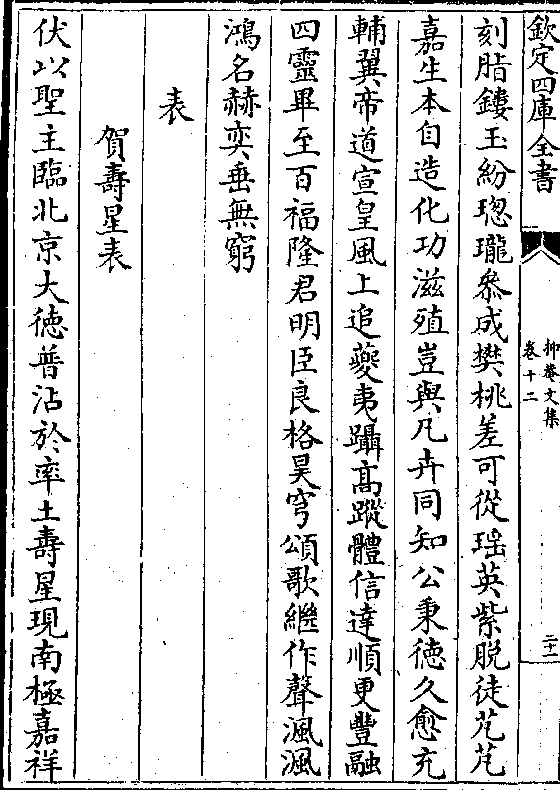 欽定四庫全書
抑菴文集
卷十二
二十一
刻脂鏤玉紛璁瓏叅成樊桃差可從瑶英紫脱徒芃芃
嘉生本自造化功滋殖豈與凡卉同知公秉徳久愈充
輔翼帝道宣皇風上追夔夷躡高蹤體信達順更豐融
四靈畢至百福隆君明臣良格昊穹頌歌繼作聲渢渢
鴻名赫奕垂無窮
表
賀壽星表
伏以聖主臨北京大徳普沾於率土壽星現南極嘉祥